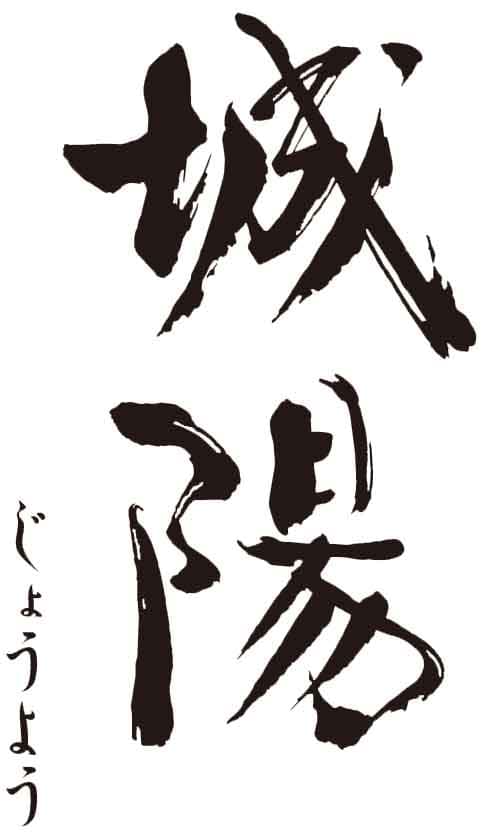 城陽
じょうよう